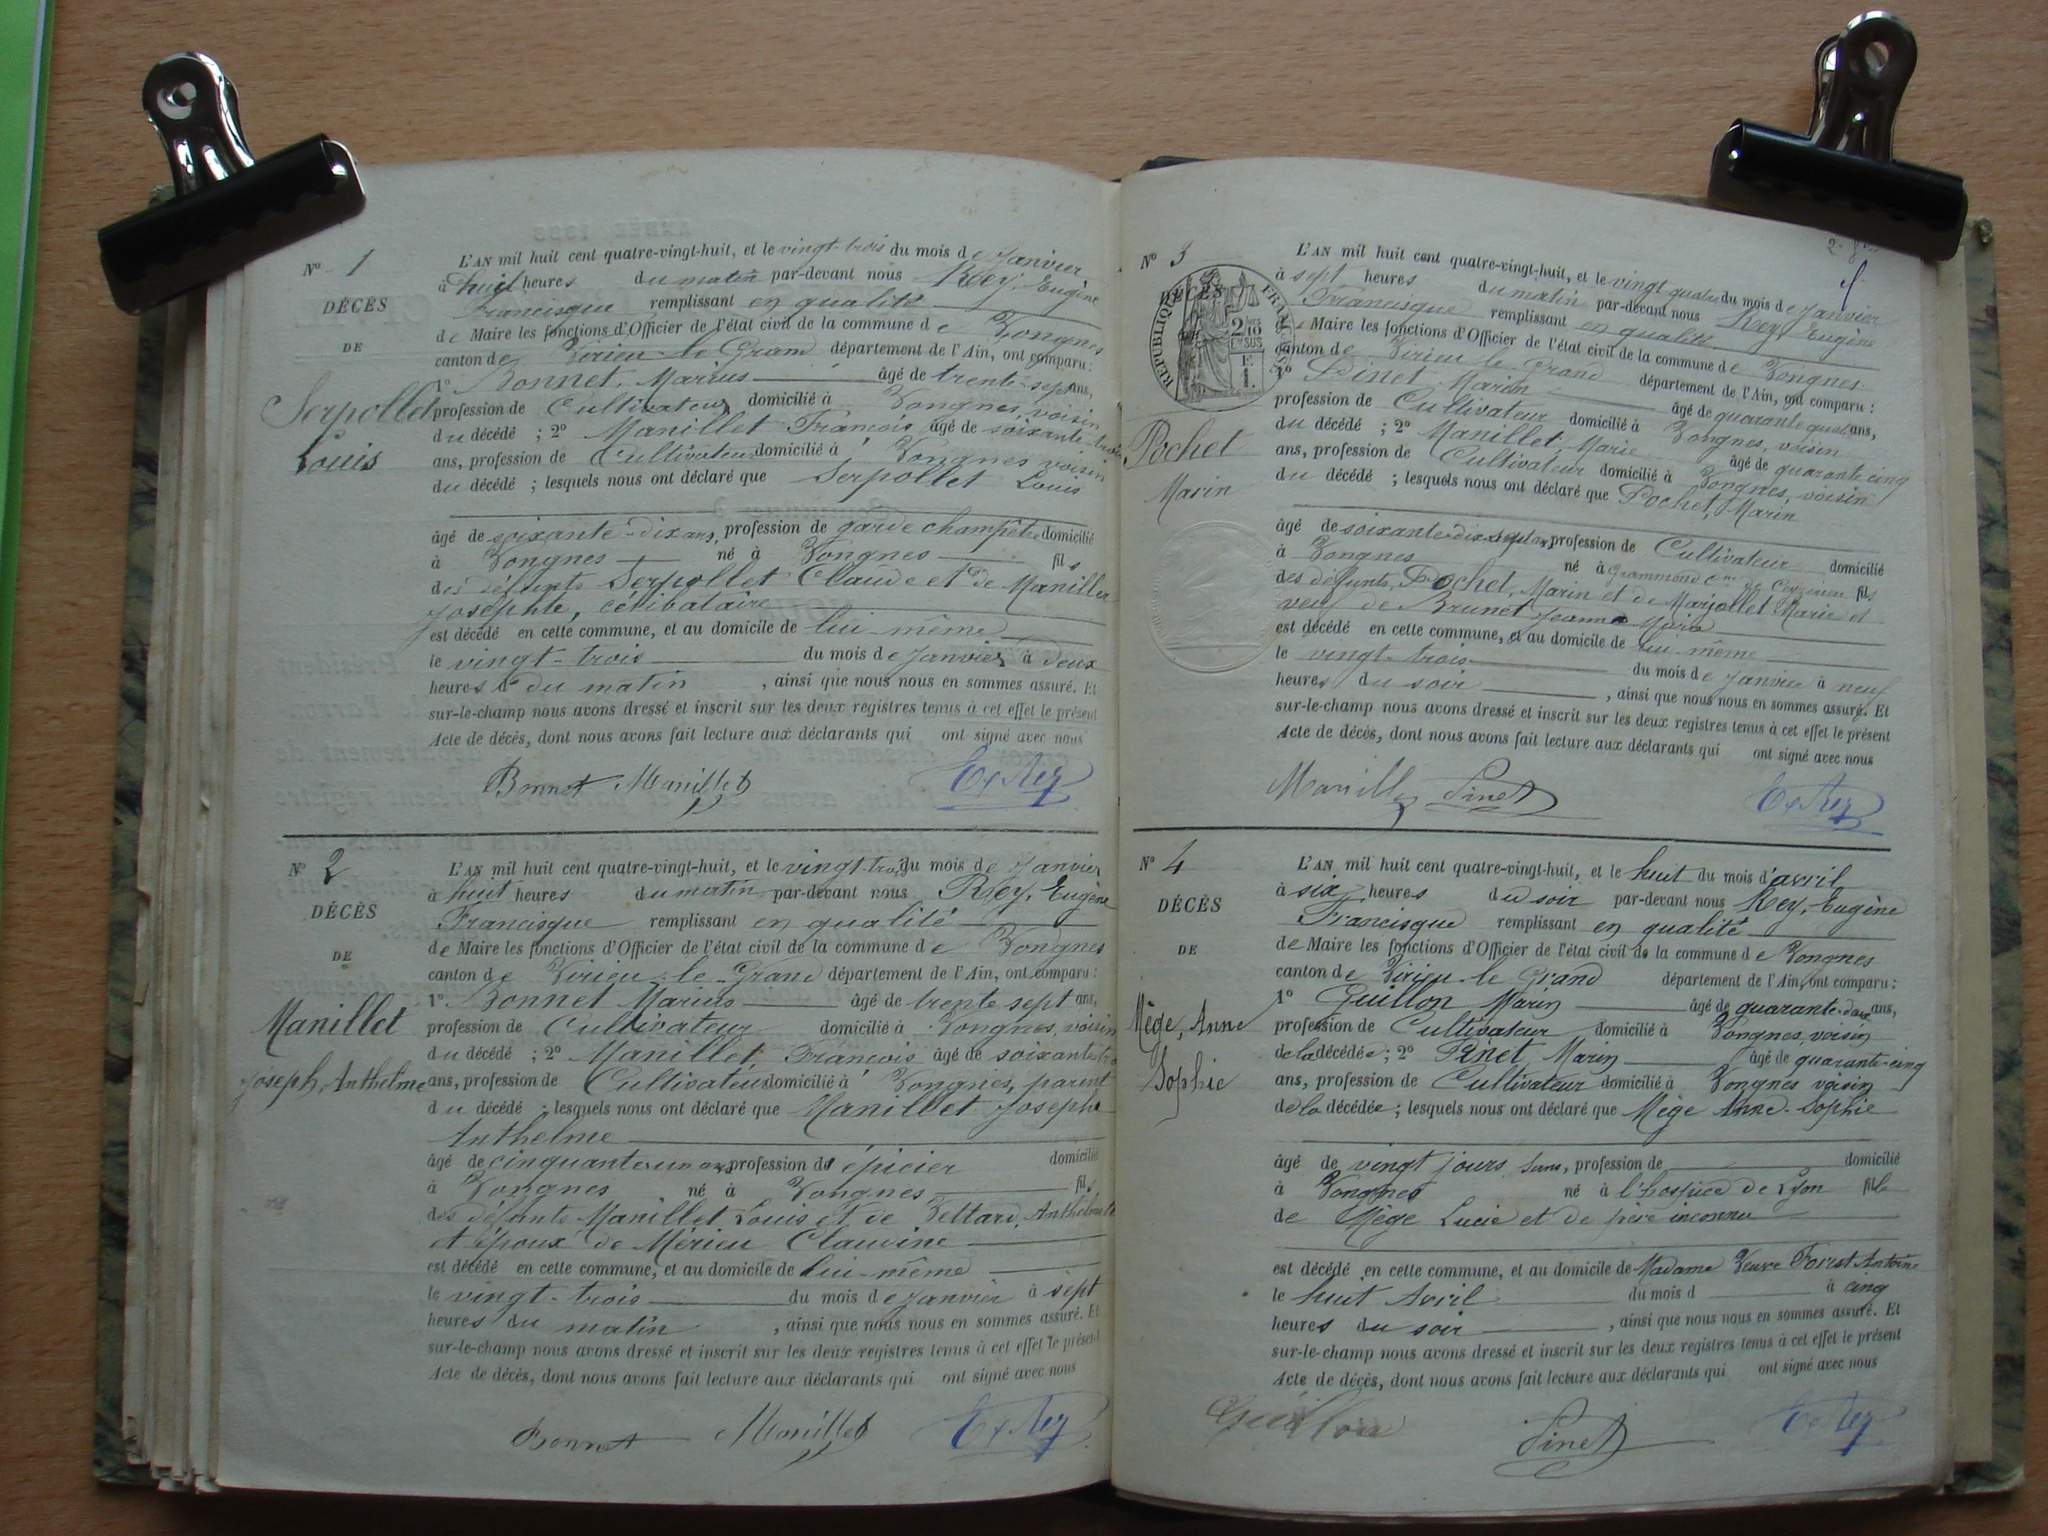 N° 1
DÉCÈS
DE
Serpollet
Louis
L'AN mil huit cent quatre-vingt-huit, et le vingt-trois du mois de Janvier
à huit heures du matin par-devant nous Rey, Eugène
Francisque remplissant en qualité
de Maire les fonctions d'Officier de l'état civil de la commune de Vongnes
canton de Virieu-le-Grand département de l'Ain, ont comparu :
1° Bonnet, Marius âgé de trente-sept ans,
profession de Cultivateur domicilié à Vongnes, voisin
du décédé ; 2° Manillet François âgé de soixante-trois
ans, profession de Cultivateur domicilié à Vongnes voisin
du décédé ; lesquels nous ont déclaré que Serpollet Louis
âgé de soixante-dix ans, profession de garde champêtre domicilié
à Vongnes né à Vongnes fils
des défunts Serpollet Claude et de Manillet
Josephte, célibataire
est décédé en cette commune, et au domicile de lui-même
le vingt-trois du mois de Janvier à deux
heures du matin , ainsi que nous nous en sommes assuré. Et
sur-le-champ nous avons dressé et inscrit sur les deux registres tenus à cet effet le présent
Acte de décès, dont nous avons fait lecture aux déclarants qui ont signé avec nous
Bonnet Manillet Ex Rey
N° 2
DÉCÈS
DE
Manillet
Joseph, Anthelme
L'AN mil huit cent quatre-vingt-huit, et le vingt-trois du mois de Janvier
à huit heures du matin par-devant nous Rey, Eugène
Francisque remplissant en qualité
de Maire les fonctions d'Officier de l'état civil de la commune de Vongnes
canton de Virieu-le-Grand département de l'Ain, ont comparu :
1° Bonnet Marius âgé de trente sept ans,
profession de Cultivateur domicilié à Vongnes, voisin
du décédé ; 2° Manillet, François âgé de soixante
ans, profession de Cultivateur domicilié à Vongnes, parent
du décédé ; lesquels nous ont déclaré que Manillet Joseph
Anthelme
âgé de cinquante-un ans, profession de épicier domicilié
à Vongnes né à Vongnes fils
des défunts Manillet Louis et de Vettard, Anthelmette
et époux de Mérieu Claudine
est décédé en cette commune, et au domicile de lui-même
le vingt-trois du mois de Janvier à sept
heures du matin , ainsi que nous nous en sommes assuré. Et
sur-le-champ nous avons dressé et inscrit sur les deux registres tenus à cet effet le présent
Acte de décès, dont nous avons fait lecture aux déclarants qui ont signé avec nous
Bonnet Manillet Ex Rey
N° 3
DÉCÈS
RÉPUBLIQUE FRANÇAISE
Pochet
Marin
L'AN mil huit cent quatre-vingt-huit, et le vingt quatre du mois de Janvier
à sept heures du matin par-devant nous Rey, Eugène
Francisque remplissant en qualité
de Maire les fonctions d'Officier de l'état civil de la commune de Vongnes
canton de Virieu le Grand département de l'Ain, ont comparu :
1° Pinet Marin âgé de quarante quatre ans,
profession de Cultivateur domicilié à Vongnes, voisin
du décédé ; 2° Manillet, Marie âgé de quarante cinq
ans, profession de Cultivateur domicilié à Vongnes, voisin
du décédé ; lesquels nous ont déclaré que Pochet, Marin
âgé de soixante-dix-sept ans, profession de Cultivateur domicilié
à Vongnes né à Grammond cne de Ceyzérieu fils
des défunts, Pochet, Marin et de Marjollet Marie et
veuf de Brunet Jeanne Marie
est décédé en cette commune, et au domicile de lui-même
le vingt-trois du mois de Janvier à neuf
heures du soir , ainsi que nous nous en sommes assuré. Et
sur-le-champ nous avons dressé et inscrit sur les deux registres tenus à cet effet le présent
Acte de décès, dont nous avons fait lecture aux déclarants qui ont signé avec nous
Manillet Pinet Ex Rey
N° 4
DÉCÈS
DE
Mège, Anne
Sophie
L'AN mil huit cent quatre-vingt-huit, et le huit du mois d'avril
à six heures du soir par-devant nous Rey, Eugène
Francisque remplissant en qualité
de Maire les fonctions d'Officier de l'état civil de la commune de Vongnes
canton de Virieu le Grand département de l'Ain, ont comparu :
1° Guillon Marin âgé de quarante-deux ans,
profession de Cultivateur domicilié à Vongnes, voisin
de la décédée ; 2° Pinet, Marin âgé de quarante-cinq
ans, profession de Cultivateur domicilié à Vongnes voisin
de la décédée ; lesquels nous ont déclaré que Mège Anne-Sophie
âgé de vingt jours, sans, profession de domicilié
à Vongnes né à l'hospice de Lyon fille
de Mège Lucie et de père inconnu
est décédé en cette commune, et au domicile de Madame Veuve Forest Antoine
le huit Avril du mois d à cinq
heures du soir , ainsi que nous nous en sommes assuré. Et
sur-le-champ nous avons dressé et inscrit sur les deux registres tenus à cet effet le présent
Acte de décès, dont nous avons fait lecture aux déclarants qui ont signé avec nous
Guillon Pinet Ex Rey